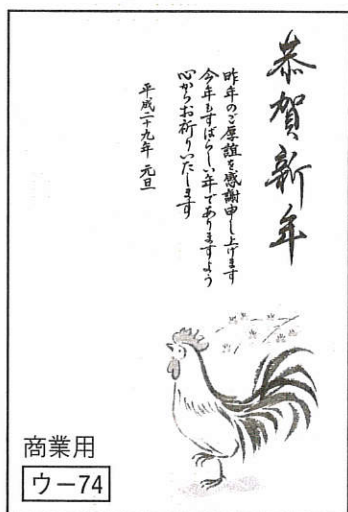 恭賀新年
昨年のご厚誼を感謝申し上げます
今年もすばらしい年でありますよう
心からお祈りいたします
平成二十九年 元旦
商業用
ウー74